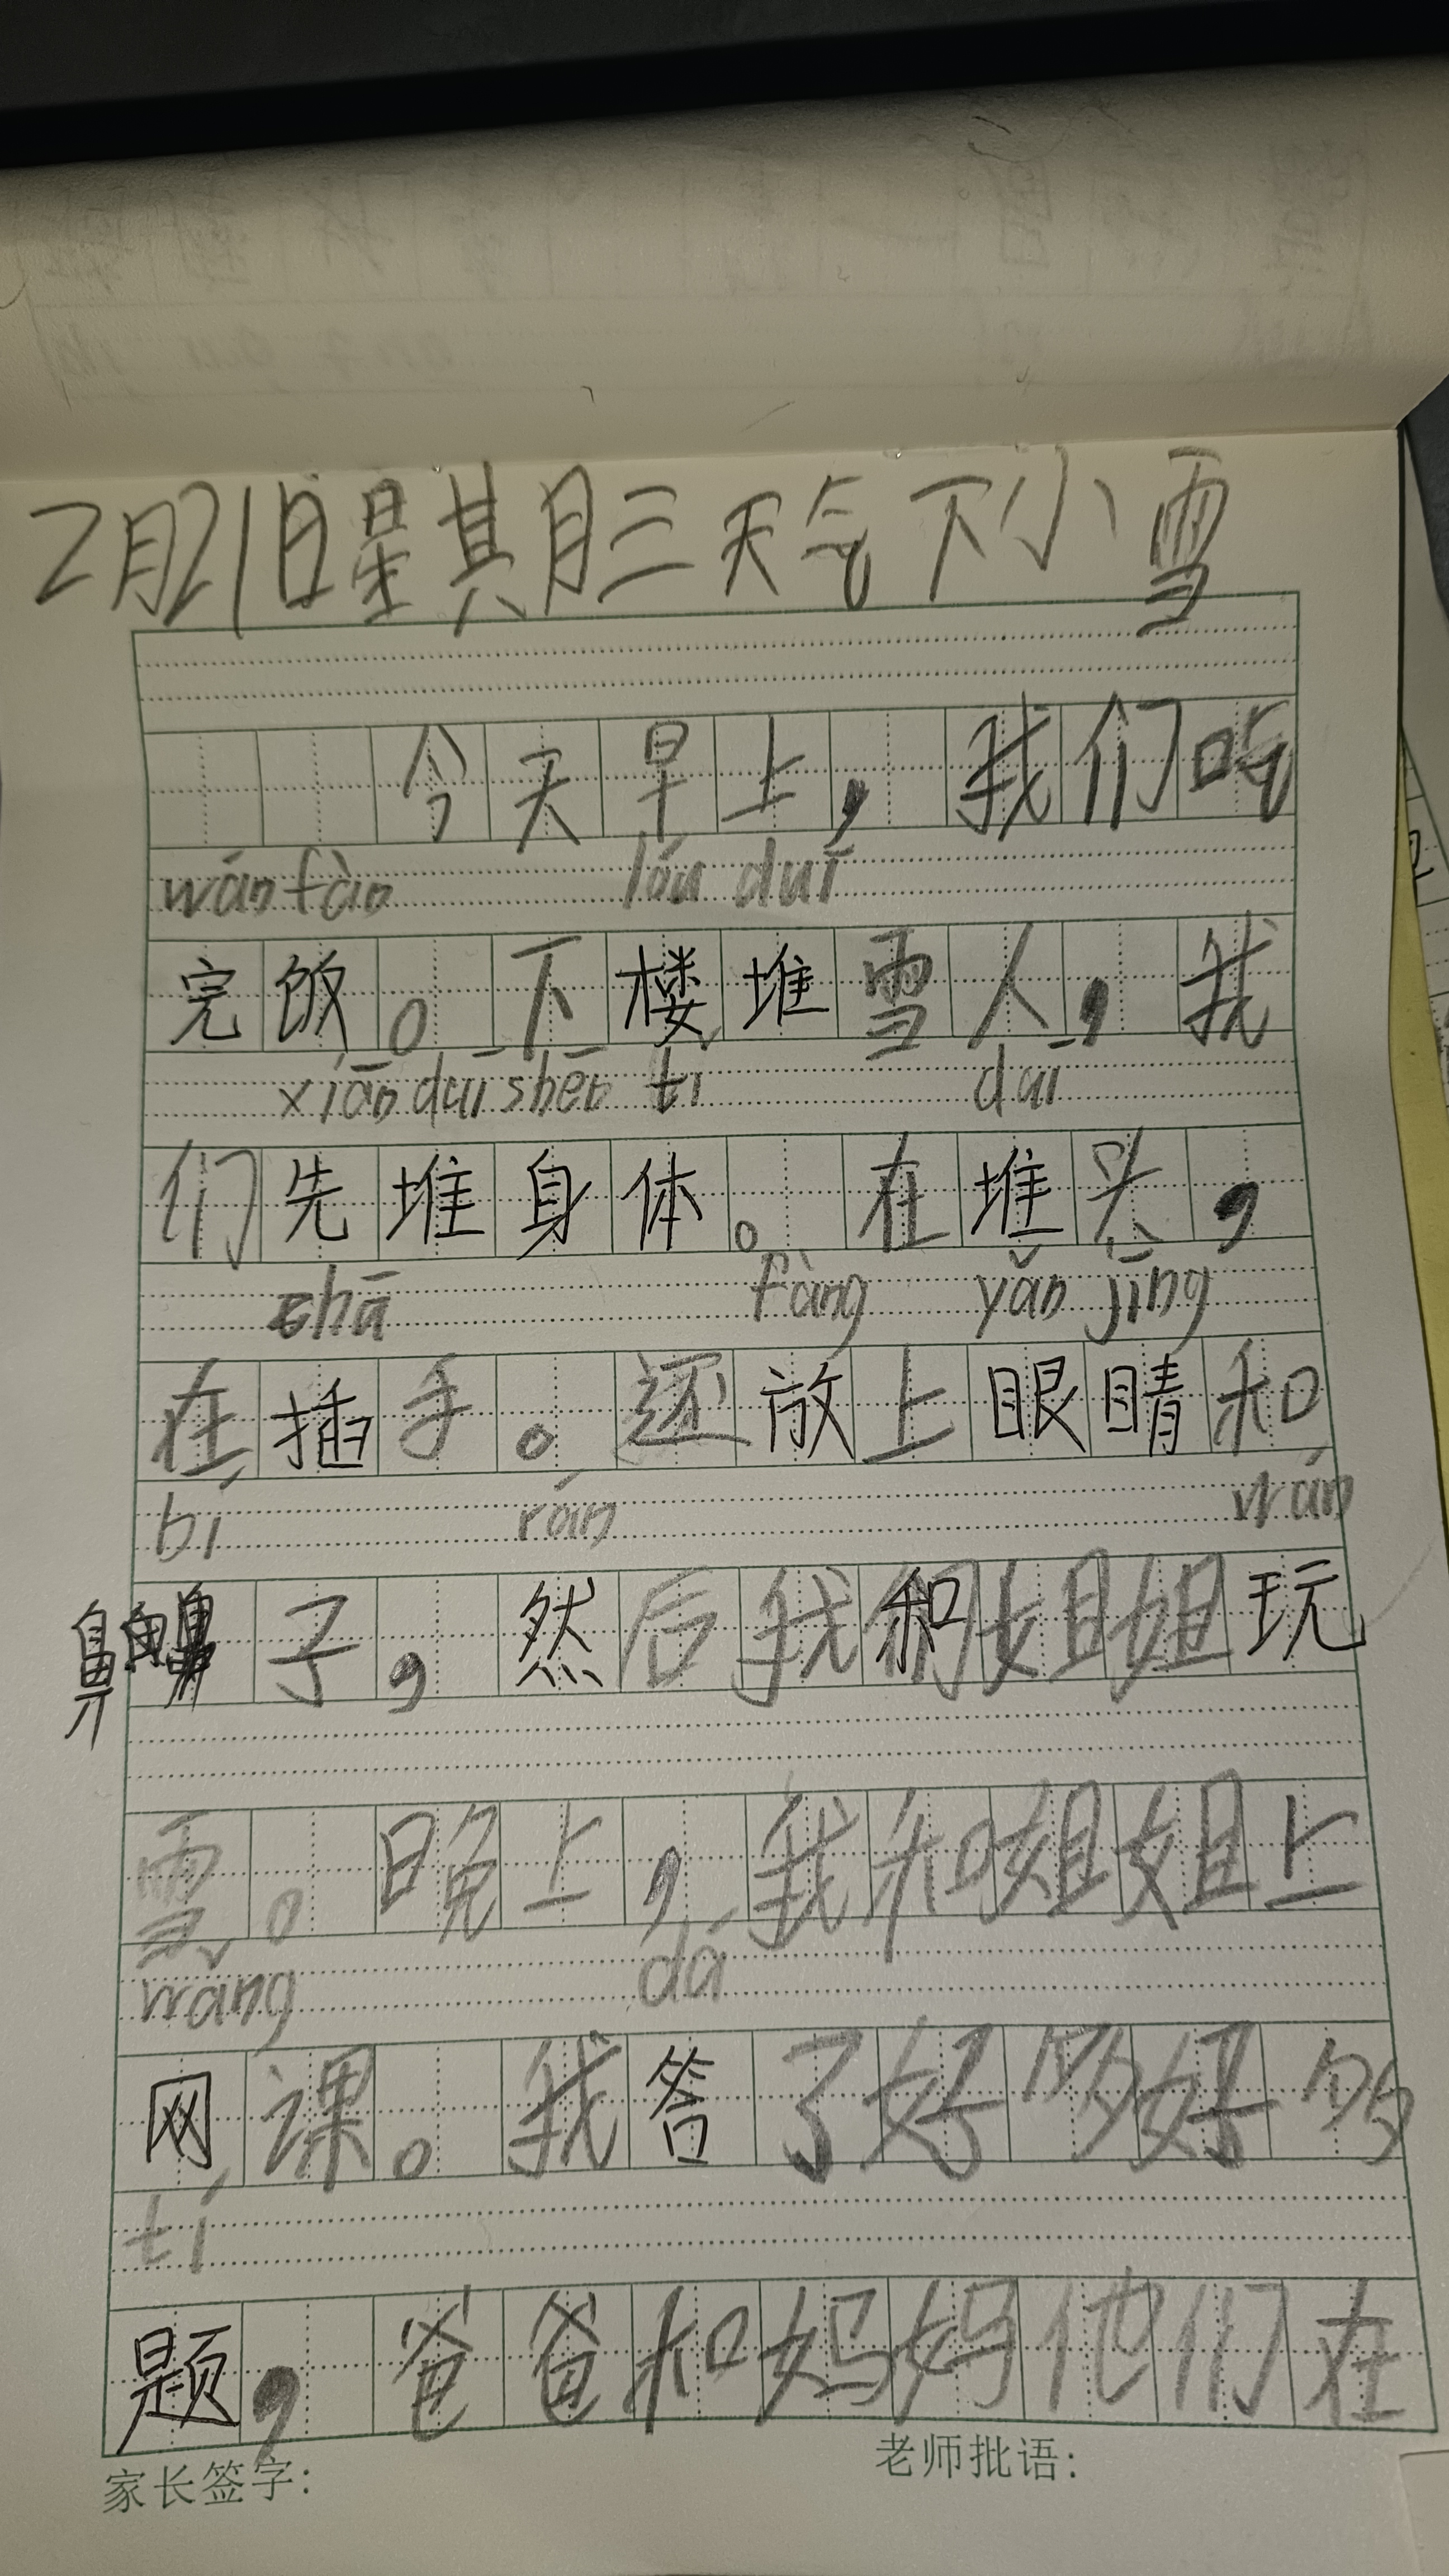 2月21日星其月三天气下小雪
今天早上，我们吃
wán fàn lóu duī
完饭。下楼堆雪人，我
xiān duī shēn tǐ duī
们先堆身体。在堆头，
chā fàng yǎn jīng
在插手。还放上眼睛和
bí rán wán
鼻子，然后我和姐姐玩
雪。晚上，我和姐姐上
wǎng dá
网课。我答了好多好多
tí
题，爸爸和妈妈他们在
家长签字： 老师批语：